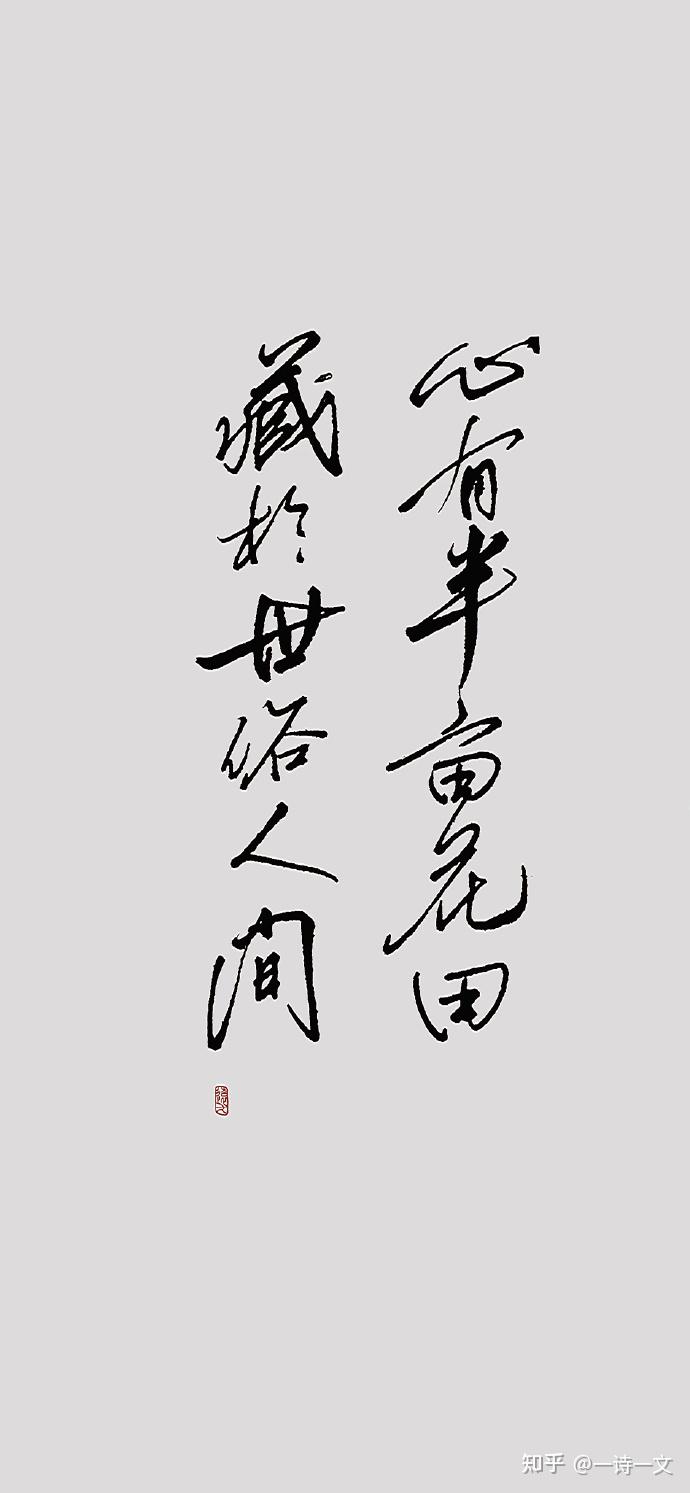 心有半亩花田
藏於世俗人间
知乎 @一诗一文